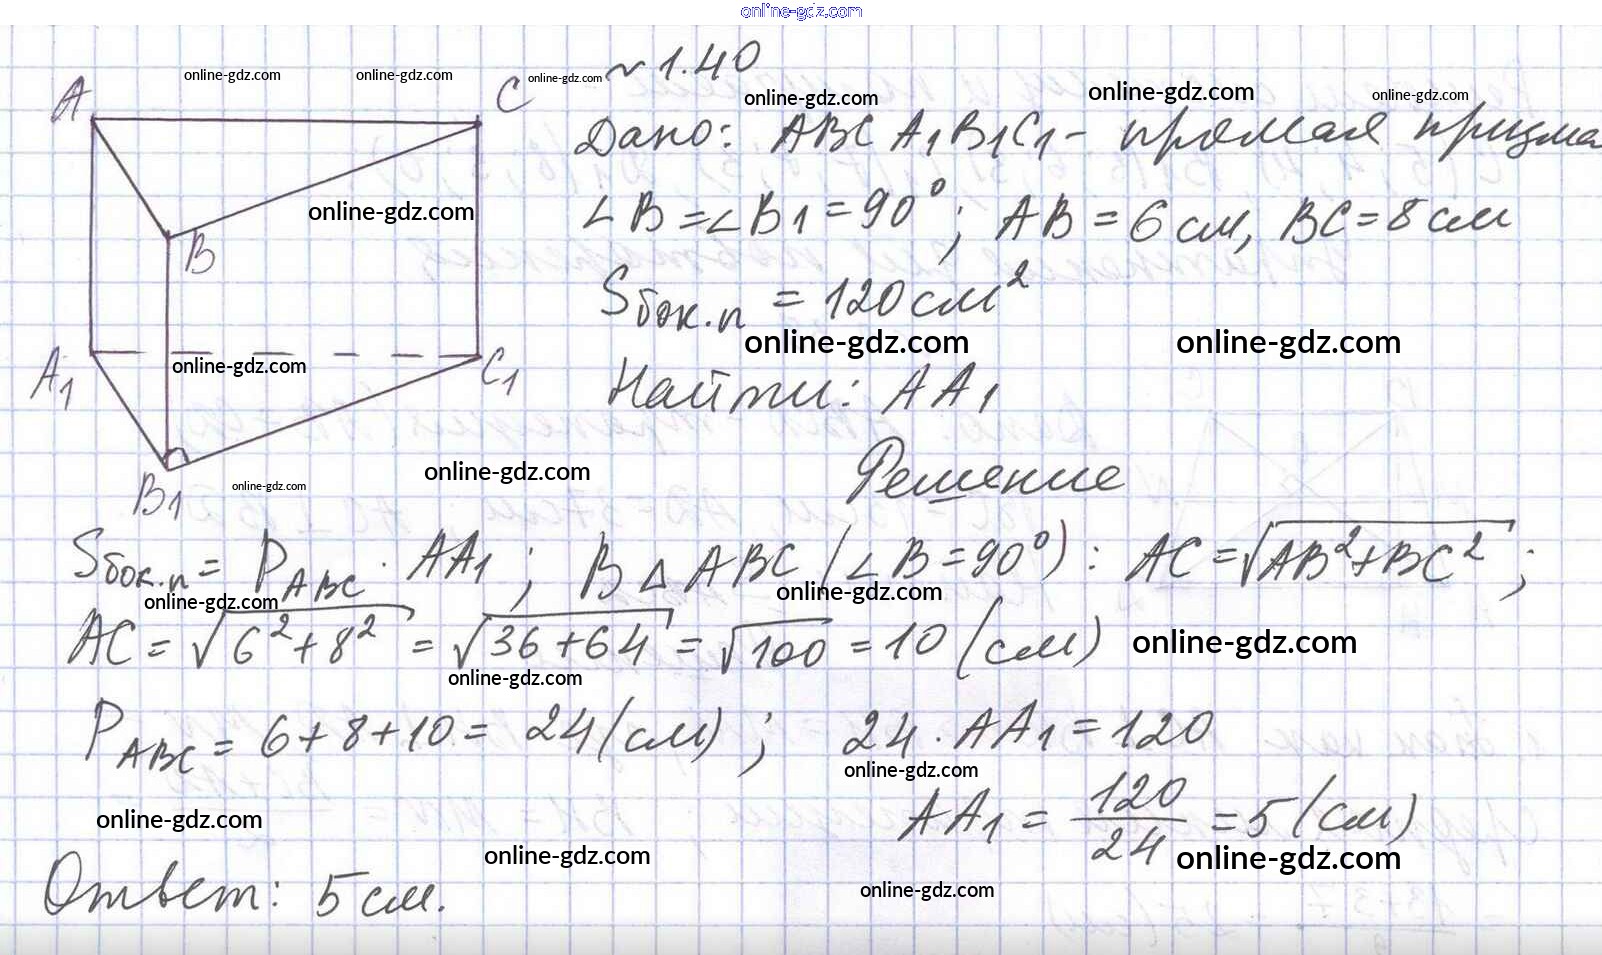 online-gdz.com
online-gdz.com online-gdz.com online-gdz.com ~ 1.40
A C
online-gdz.com online-gdz.com online-gdz.com
Дано: ABCA₁B₁C₁ - прямая призма
online-gdz.com
∠B = ∠B₁ = 90°; AB = 6 см, BC = 8 см
B
Sбок.п = 120 см²
online-gdz.com online-gdz.com
A₁ online-gdz.com C₁
Найти: AA₁
online-gdz.com
Решение
B₁ online-gdz.com
Sбок.п = P_ABC · AA₁; В △ABC (∠B = 90°): AC = √(AB² + BC²);
online-gdz.com online-gdz.com
AC = √(6² + 8²) = √(36 + 64) = √100 = 10 (см) online-gdz.com
online-gdz.com
P_ABC = 6 + 8 + 10 = 24 (см); 24 · AA₁ = 120
online-gdz.com
online-gdz.com
AA₁ = 120/24 = 5 (см)
online-gdz.com online-gdz.com
online-gdz.com
Ответ: 5 см.